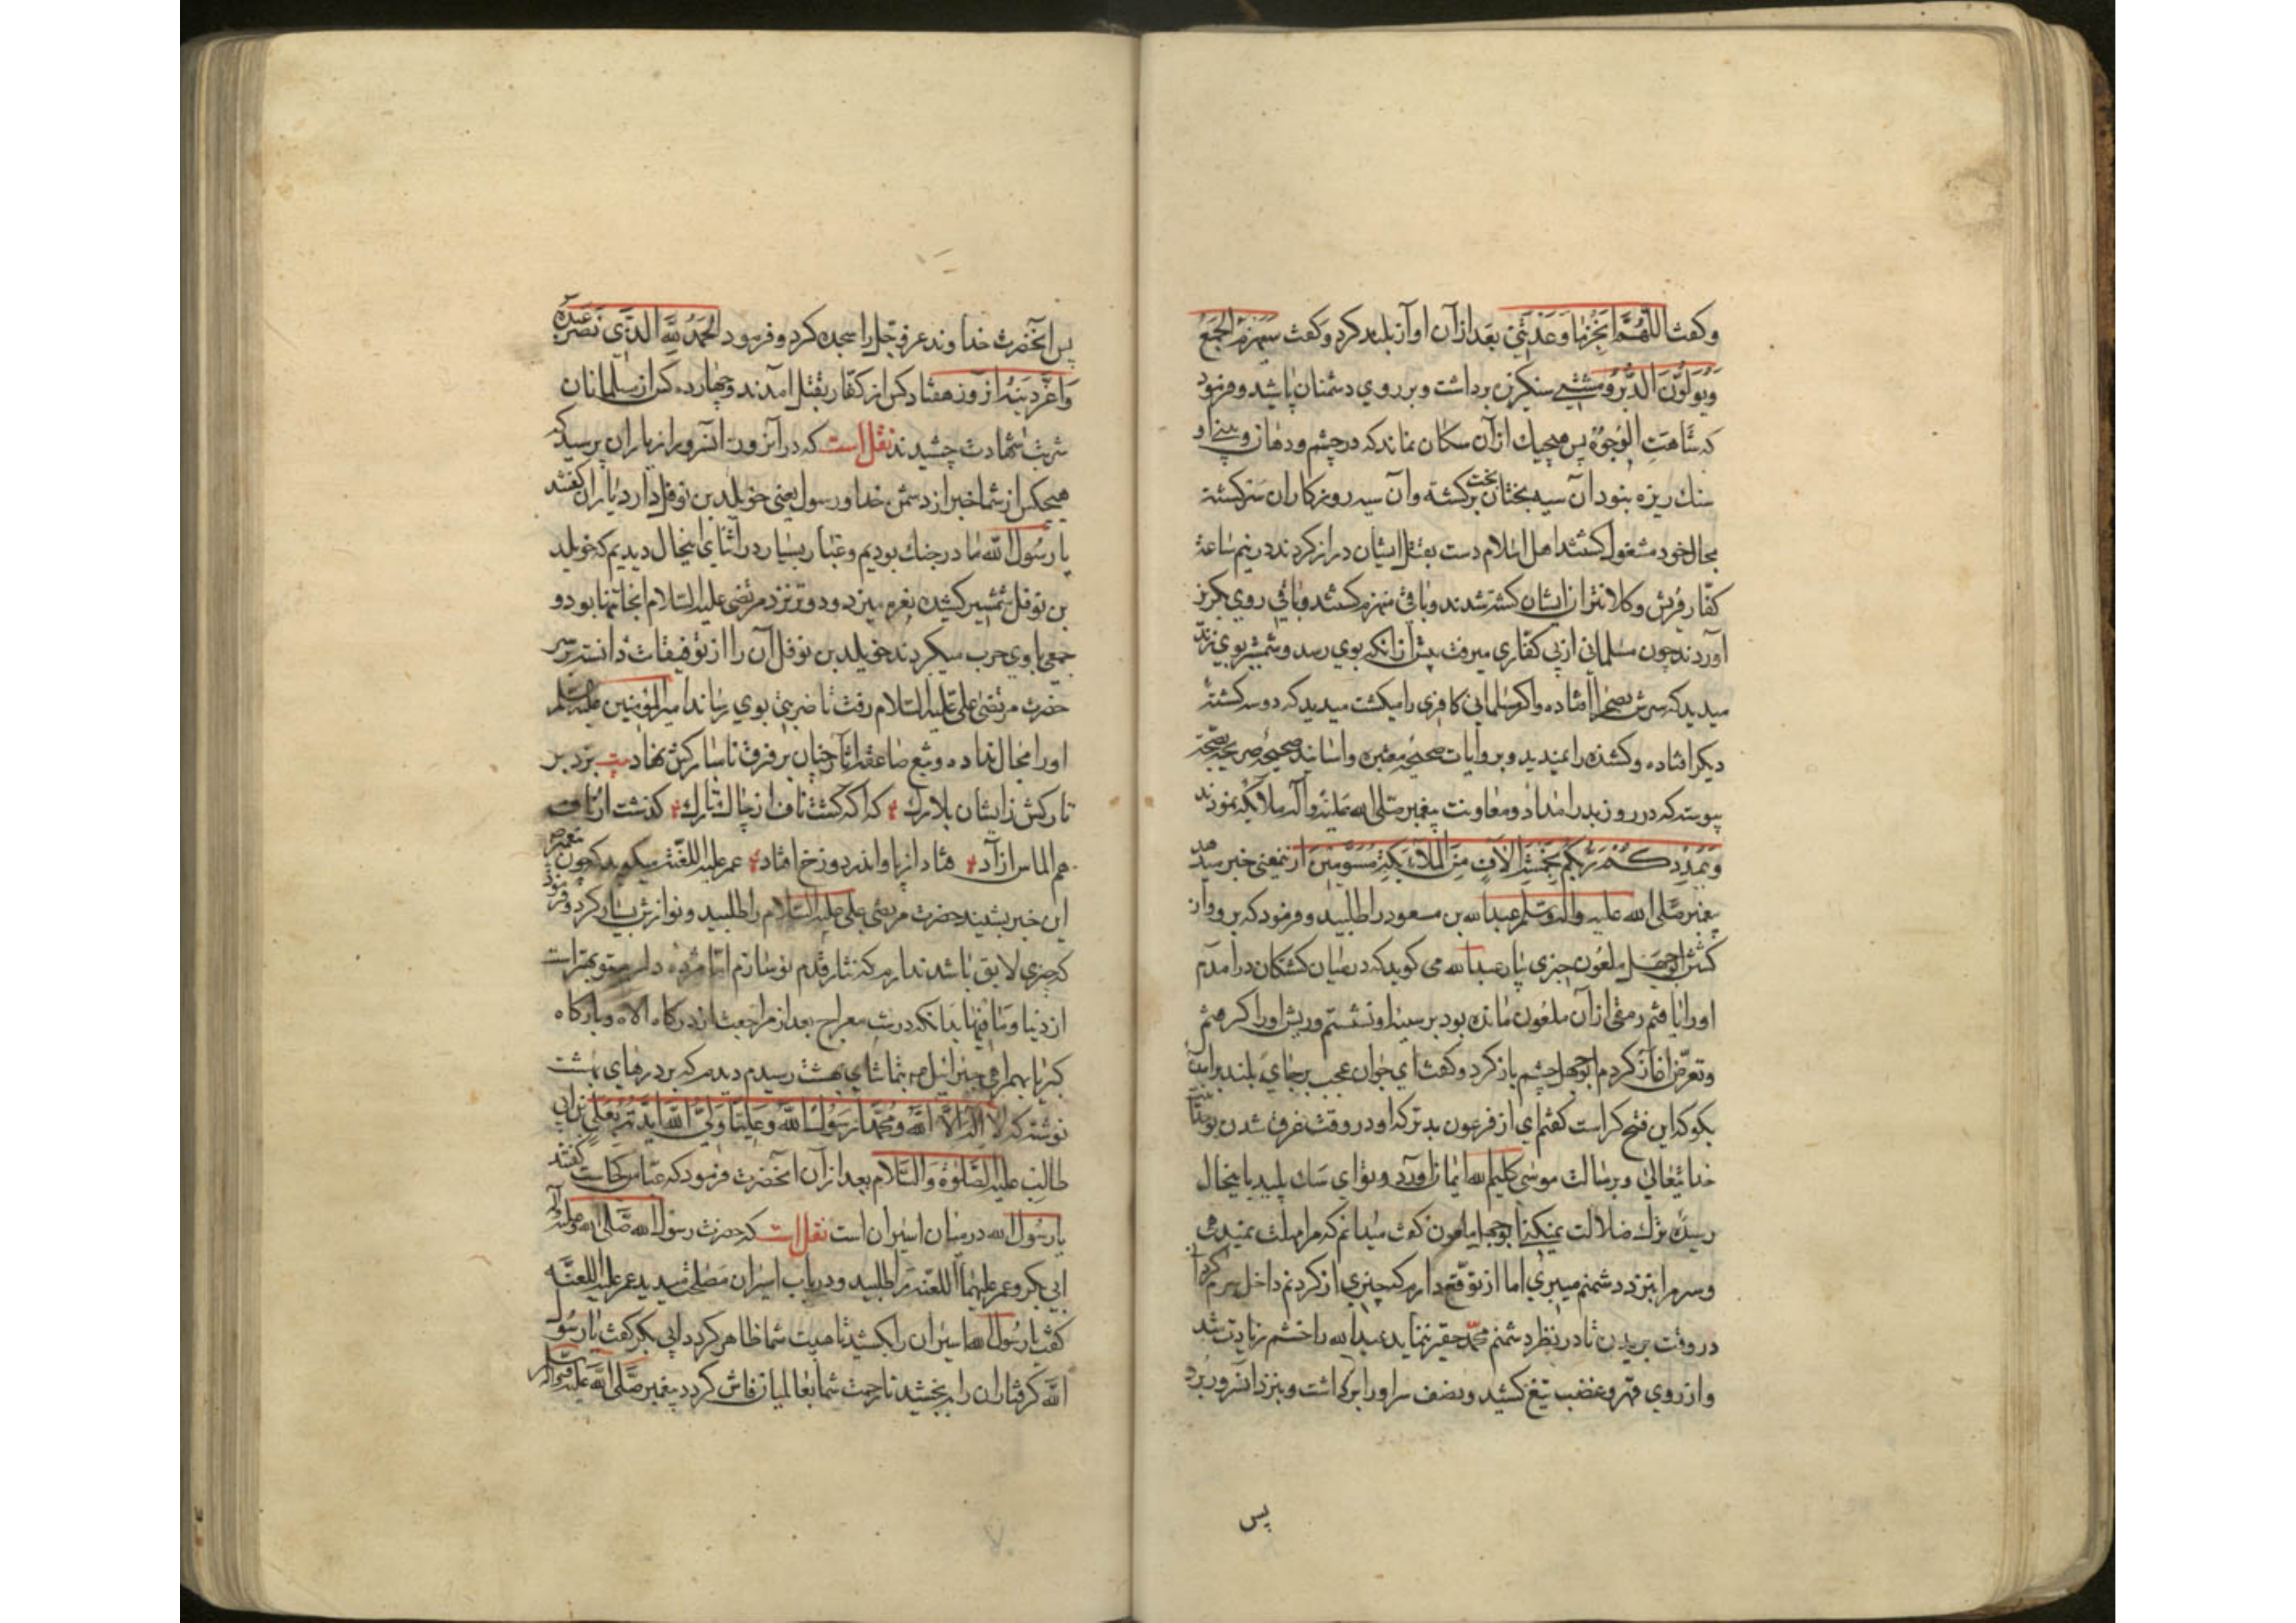 وکفت اللّهُمَّ اَنجِزْ ما وَعَدْتَنی بعد از آن اواز بلند کرد و کفت سَیُهزَمُ الجَمْعُ
وَیُوَلُّونَ الدُّبُرَ و مشتی سنکریزه برداشت و بر روی دشمنان پاشید و فرمود
که شاهَتِ الوُجُوهُ پس هیچیک از آن سکان نماند که در چشم و دهان و بینی او
سنک ریزه بنود آن سیه بختان بخت برکشته و آن سیه روزکاران سرکشته
بحال خود مشغول کشتند اهل اسلام دست بقتل ایشان دراز کردند در نیم ساعة
کفّار قریش و کلانتران ایشان کشته شدند و باقی منهزم کشتند و باقی روی بکریز
آوردند چون مسلمانی از پی کفّاری میرفت پیش از انکه بوی رسد و شمشیر بوی زند
میدید که سرش بصحرا افتاده و اکر مسلمانی کافری را میکشت میدید که دوسه کشتهٔ
دیکر افتاده و کشنده را نمیدید و بروایات صحیحهٔ معتبره و اسانید صحیحهٔ صریحه بصحّة
پیوسته که در روز بدر امداد و معاونت پیغمبر صلی الله علیه وآله ملائکه نمودند
وَیُمْدِدْکُمْ رَبُّکُم بِخَمْسَةِ الآفٍ مِنَ المَلائِکَةِ مُسَوِّمینَ از ینمعنی خبر میدهد
پیغمبر صَلّی الله علیه وآله وسَلم عبدالله بن مسعود را طلبید و فرمود که برو و از
کشتن ابوجهل ملعون خبری بیار عبدالله می کوید که در میان کشتکان درآمدم
اورا یافتم رمقی از آن ملعون مانده بود بر سینهٔ او نشستم و ریش اورا کرفتم
و تعرّض آغاز کردم ابوجهل چشم باز کرد و کفت ای جوان عجب بر جای بلند برآمدهٔ
بکو که این فتح کراست کفتم ای از فرعون بدتر که او در وقت غرق شدن
خدایتعالی و برسالت موسی کلیم الله ایمان آورد و تو ای سک پلید باینحال
رسیده ترک ضلالت نمیکنی ابوجهل ملعون کفت میدانم که مرا مهلت نمیدهی
و سر مرا بنزد دشمنم میبری اما از تو توقّع دارم که چیزی از کردنم داخل سرم کردان
در وقت بریدن تا در نظر دشمنم محمّد حقیر ننماید عبدالله را خشم زیادت شد
و از روی قهر و غضب تیغ کشید و نصف سر اورا برداشت و بنزد آنسرور برد
پس
پس آنحضرت خداوند عزّ و جلّ را سجده کرد و فرمود الحَمْدُ لِلّهِ الَّذی نَصَرَ عَبْدَهُ
وَاَعَزَّ دینَهُ در آنروز هفتاد کس از کفّار بقتل آمدند و چهارده کس از مسلمانان
شربت شهادت چشیدند نقل است که در آنزور انسرور از یاران پرسید که
هیچکس از شما خبر از دشمن خدا و رسول یعنی خویلد بن نوفل دارد یاران کفتند
یا رسُول الله ما در جنک بودیم و غبار بسیار در اثنای اینحال دیدیم که خویلد
بن نوفل شمشیر کشیده نعره میزد ودوید نزد مرتضی علیه السّلام انجا تنها بود و
جمعی باوی حرب میکردند خویلد بن نوفل آن را از توفیقات دانسته بر سر
حضرت مرتضی علی علیه السّلام رفت تا ضربتی بوی رساند امیرالمؤمنین علیه السلم
اورا مجال نداده و تیغ صاعقه آثار چنان بر فرق ناسارکش نهاد بیت بزد بر
تارکش زانسان بلارک که آکه کشت ناف از چاک تارک کذشت از ناف
هم الماس ازاد فتاد از پا و اندر دوزخ افتاد عمر علیه اللغنة میکوید که چون پیغمبر
این خبر بشنید حضرت مرتضی علی علیه السّلام را طلبید و نوازش بسیار کرد و فرمود
که چیزی لایق باشد ندارم که نثار قدم تو سازم امّا مژده دارم بتو بهتر است
از دنیا و مافیها بدانکه در شب معراج بعد از مراجعت از درکاه اله و بارکاه
کبریا بهمراهی جبرائیل بتماشای بهشت رسیدم دیدم که بر درهای بهشت
نوشته که لا الهَ الاّ اللهُ وَمُحَمَّداً رَسُولُ الله وَعَلیّاً وَلیُّ الله
طالب علیه الصَّلوةُ وَالسَّلام بعد از آن آنحضرت فرمود که عبّاس کجاست کفتند
یا رسُول الله در میان اسیران است نقل است که حضرت رسول الله صَلّی الله علیه وآله
ابی بکر و عمر علیهما اللعنه را طلبید و در باب اسیران مصلحت میدید عمر علیه اللعنه
کفت یا رسُول الله اسیران را بکشید تا هیبت شما ظاهر کردد ابی بکر کفت یا رسُول
الله کرفتاران را ببخشید تا رحمت شما بعالمیان فاش کردد پیغمبر صَلّی الله علیه وآله